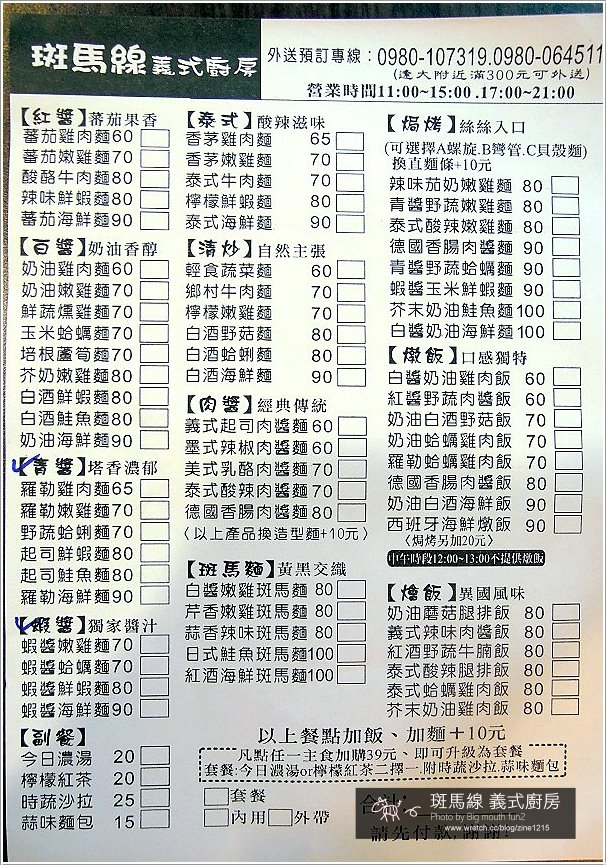 斑馬線義式廚房
外送預訂專線：0980-107319.0980-064511
(逢大附近滿300元可外送)
營業時間11:00~15:00 .17:00~21:00
【紅醬】蕃茄果香
蕃茄雞肉麵60
蕃茄嫩雞麵70
酸酪牛肉麵80
辣味鮮蝦麵80
蕃茄海鮮麵90
【白醬】奶油香醇
奶油雞肉麵60
奶油嫩雞麵70
鮮蔬燻雞麵70
玉米蛤蠣麵70
培根蘆筍麵70
芥奶嫩雞麵80
白酒鮮蝦麵80
白酒鮭魚麵80
奶油海鮮麵90
【青醬】塔香濃郁
羅勒雞肉麵65
羅勒嫩雞麵70
野蔬蛤蜊麵70
起司鮮蝦麵80
起司鮭魚麵80
羅勒海鮮麵90
【蝦醬】獨家醬汁
蝦醬嫩雞麵70
蝦醬蛤蠣麵70
蝦醬鮮蝦麵80
蝦醬海鮮麵90
【副餐】
今日濃湯 20
檸檬紅茶 20
時蔬沙拉 25
蒜味麵包 15
【泰式】酸辣滋味
香茅雞肉麵 65
香茅嫩雞麵 70
泰式牛肉麵 70
檸檬鮮蝦麵 80
泰式海鮮麵 90
【清炒】自然主張
輕食蔬菜麵 60
鄉村牛肉麵 70
檸檬嫩雞麵 70
白酒野菇麵 80
白酒蛤蜊麵 80
白酒海鮮麵 90
【肉醬】經典傳統
義式起司肉醬麵60
墨式辣椒肉醬麵60
美式乳酪肉醬麵70
泰式酸辣肉醬麵70
德國香腸肉醬麵80
〈以上產品換造型麵+10元〉
【斑馬麵】黃黑交織
白醬嫩雞斑馬麵 80
芹香嫩雞斑馬麵 80
蒜香辣味斑馬麵 80
日式鮭魚斑馬麵100
紅酒海鮮斑馬麵100
【焗烤】絲絲入口
(可選擇A螺旋.B彎管.C貝殼麵)
換直麵條+10元
辣味茄奶嫩雞麵 80
青醬野蔬嫩雞麵 80
泰式酸辣嫩雞麵 80
德國香腸肉醬麵 90
青醬野蔬蛤蠣麵 90
蝦醬玉米鮮蝦麵 90
芥末奶油鮭魚麵100
白醬奶油海鮮麵100
【燉飯】口感獨特
白醬奶油雞肉飯 60
紅醬野蔬雞肉飯 60
奶油白酒野菇飯 70
奶油蛤蠣雞肉飯 70
羅勒蛤蠣雞肉飯 70
德國香腸肉醬飯 80
奶油白酒海鮮飯 90
西班牙海鮮燉飯 90
〈焗烤另加20元〉
中午時段12:00~13:00不提供燉飯
【燴飯】異國風味
奶油蘑菇腿排飯 80
義式辣味肉醬飯 80
紅酒野蔬牛腩飯 80
泰式酸辣腿排飯 80
泰式蛤蠣雞肉飯 80
芥末奶油雞肉飯 80
以上餐點加飯、加麵＋10元
凡點任一主食加購39元、即可升級為套餐
套餐:今日濃湯or檸檬紅茶二擇一.附時蔬沙拉.蒜味麵包
套餐
內用 外帶
合計:
請先付款,謝謝!
斑馬線 義式廚房
Photo by Big mouth fun2
www.wretch.cc/blog/zine1215